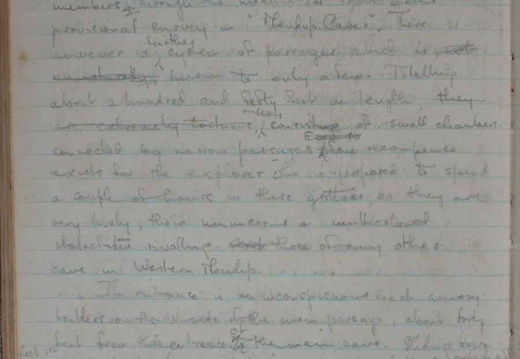 members through the
provisional survey in "Mendip Caves", there is
however a further system of passages which is, not
known to only a few. Totalling
about a hundred and fifty feet in length, they
are extremely tortuous, they consisting of small chambers
connected by narrow passages. recompense
exists for the explorer who is prepared to spend
a couple of hours in these grottoes, as they are
very lovely, their numerous & multicoloured
stalactites rivalling those of many other
cave in Western Mendip.
The entrance is an inconspicuous crack among
boulders on the side of the main passage, about forty
feet from the entrance of the main cave. down